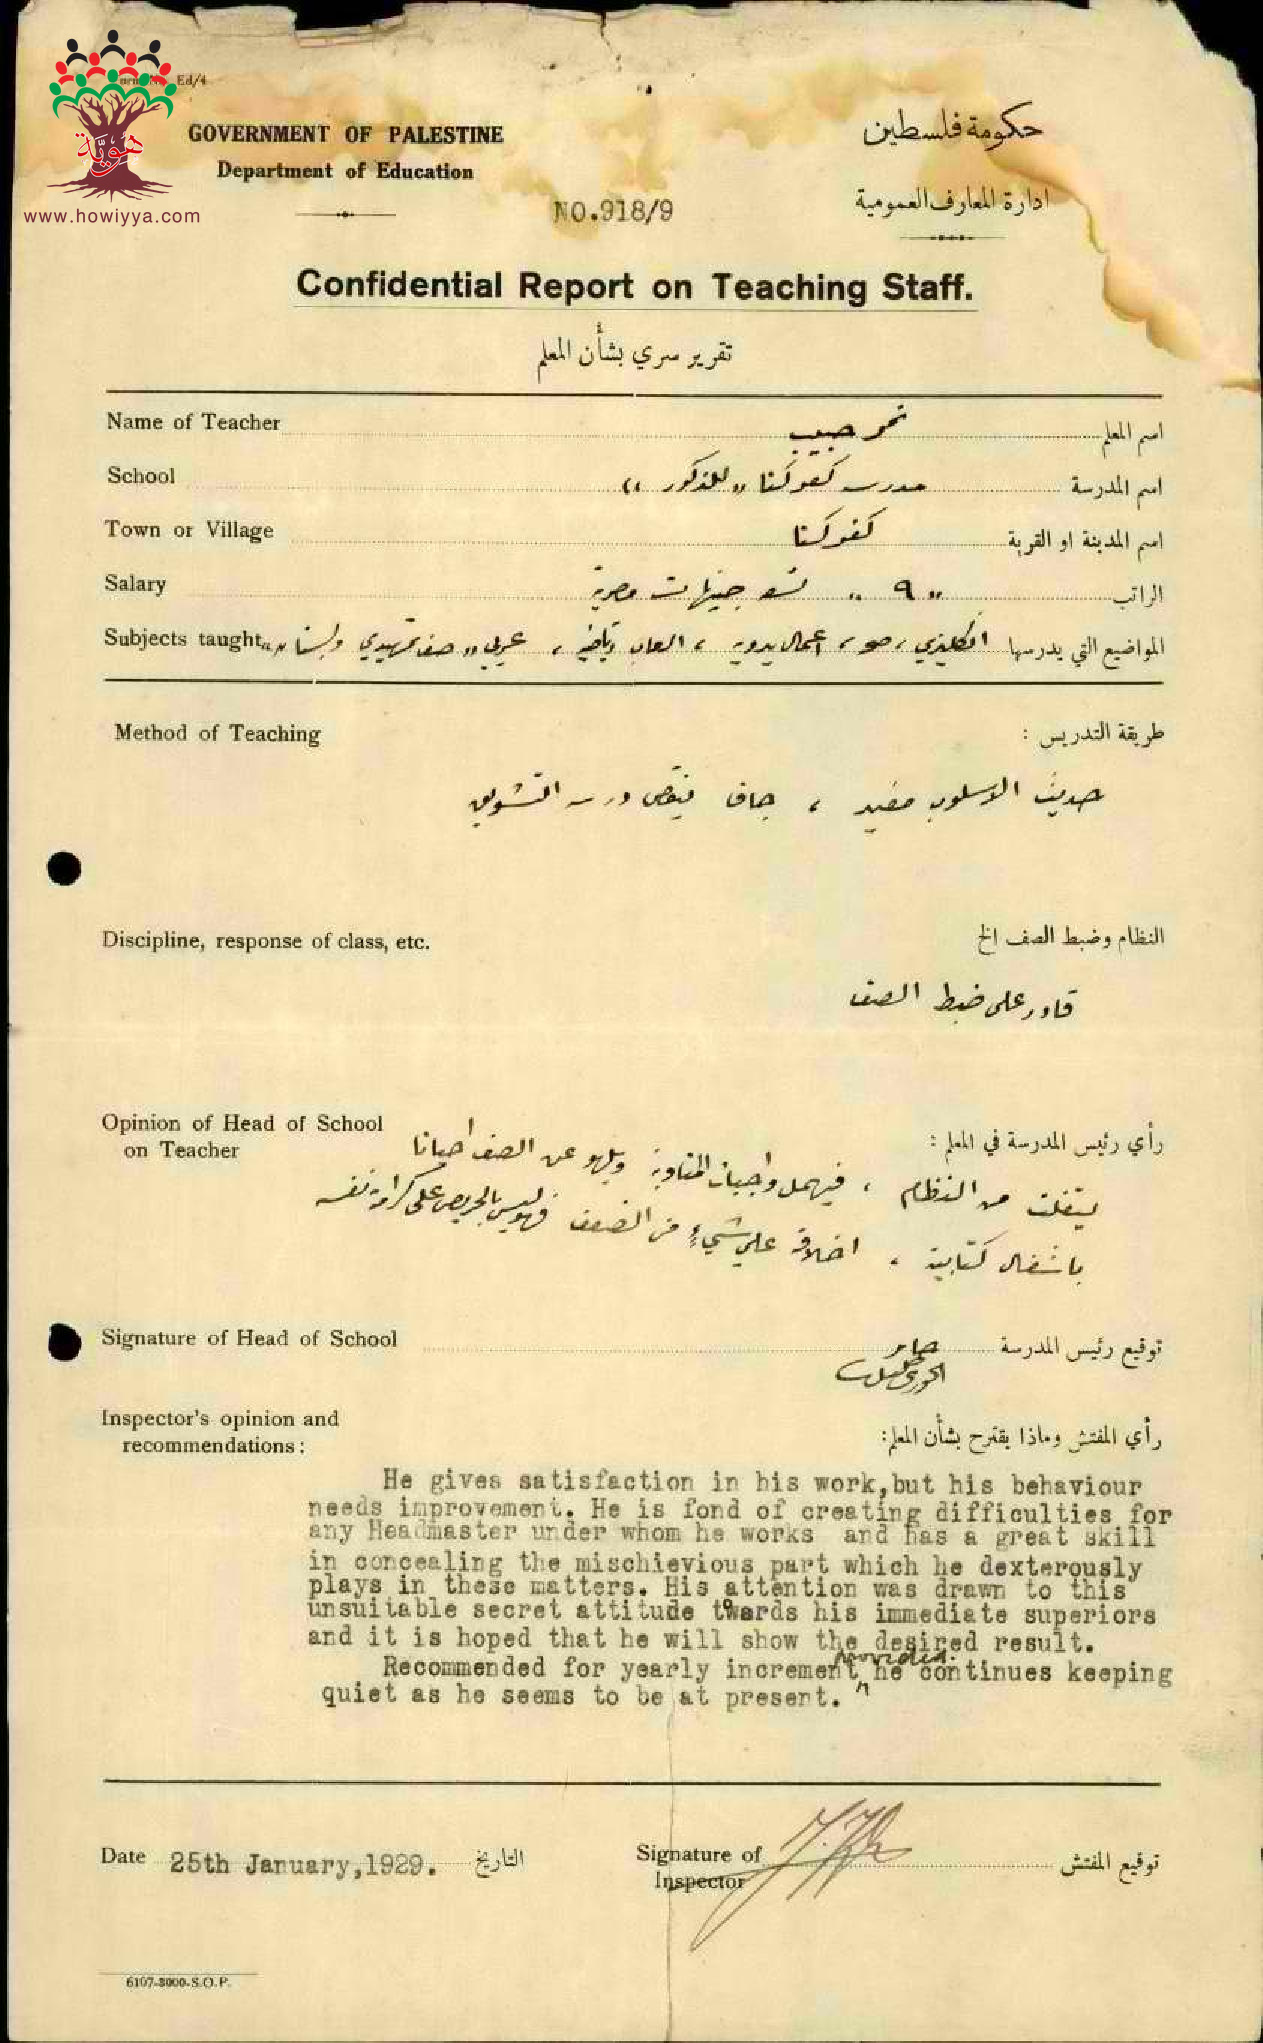 Ed/4
هويّة
www.howiyya.com
GOVERNMENT OF PALESTINE
Department of Education
حكومة فلسطين
ادارة المعارف العمومية
NO.918/9
Confidential Report on Teaching Staff.
تقرير سري بشأن المعلم
Name of Teacher حبيب اسم المعلم
School مدرسة كفركنا "للذكور" اسم المدرسة
Town or Village كفركنا اسم المدينة او القرية
Salary "٩" تسع جنيهات مصرية الراتب
Subjects taught المواضيع التي يدرسها انكليزي، اعمال يدوية، العاب رياضية، عربي "صف تمهيدي وبستان"
Method of Teaching طريقة التدريس :
حديث الاسلوب مفيد ، جاف ينقص درسه التشويق
Discipline, response of class, etc. النظام وضبط الصف الخ
قادر على ضبط الصف
Opinion of Head of School
on Teacher
رأي رئيس المدرسة في المعلم :
يتفلت من النظام ، فيهمل واجبات المناوبة ويلهو عن الصف احيانا
باشغال كتابية ، اخلاقه على شيءٍ من الضعف فهو ليس بالحريص على كرامة نفسه
Signature of Head of School توقيع رئيس المدرسة
جابر
الخوري
Inspector's opinion and
recommendations :
رأي المفتش وماذا يقترح بشأن المعلم:
He gives satisfaction in his work,but his behaviour
needs improvement. He is fond of creating difficulties for
any Headmaster under whom he works and has a great skill
in concealing the mischievious part which he dexterously
plays in these matters. His attention was drawn to this
unsuitable secret attitude towards his immediate superiors
and it is hoped that he will show the desired result.
provided
Recommended for yearly increment he continues keeping
quiet as he seems to be at present.
Date 25th January,1929. التاريخ
Signature of
Inspector
توقيع المفتش
6107-3000-S.O.P.